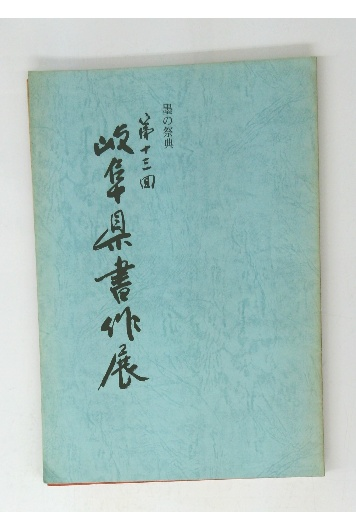 墨の祭典
第十三回
岐阜県書作展